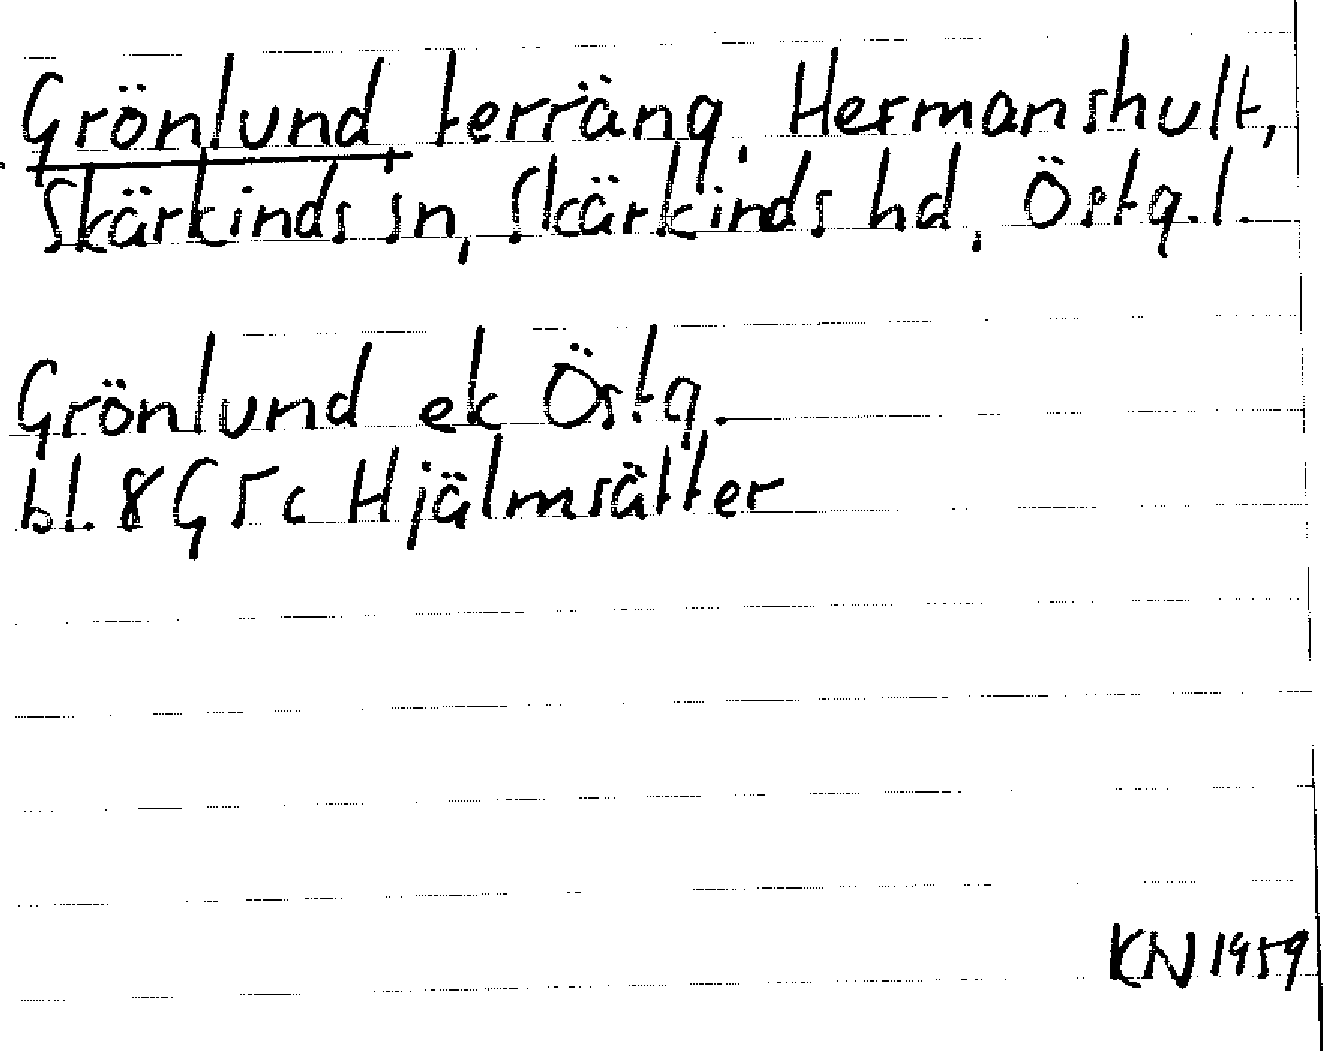 Grönlund, terräng, Hermanshult,
Skärkinds sn, Skärkinds hd, Östg.l.
Grönlund ek Östg.
bl. 8G5c Hjälmsätter
KN 1959